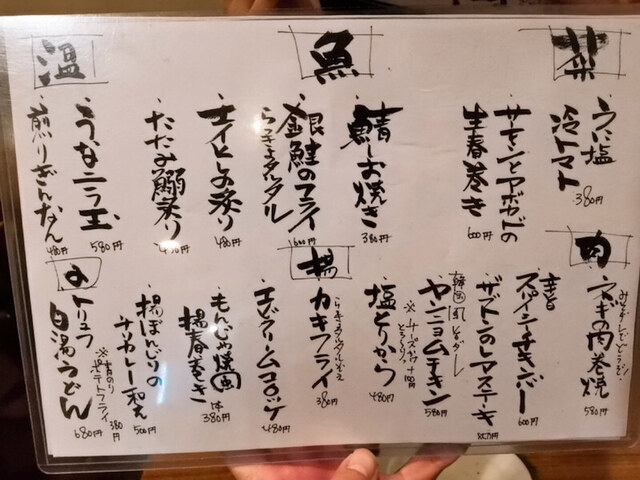 菜
うに塩
冷トマト
380円
サーモンとアボカドの
生春巻き
600円
魚
鯖しお焼き
380円
銀鮭のフライ
らっきょタルタル
600円
エイヒレの炙り
480円
たたみ鰯炙り
温
うなニラ玉
580円
煎りぎんなん
480円
肉
ネギの肉巻焼
580円
辛旨
スパイシーチキンバー
600円
ザブトンのレアステーキ
ヤンニョムチキン
580円
塩とりから
※チーズがけ+100円
480円
揚
カキフライ
380円
エビクリームコロッケ
480円
もんじゃ焼風
揚春巻き
1本
380円
揚ぼんじりの
500円
※青のり
ポテトフライ
380円
〆
トリュフ
白湯うどん
680円